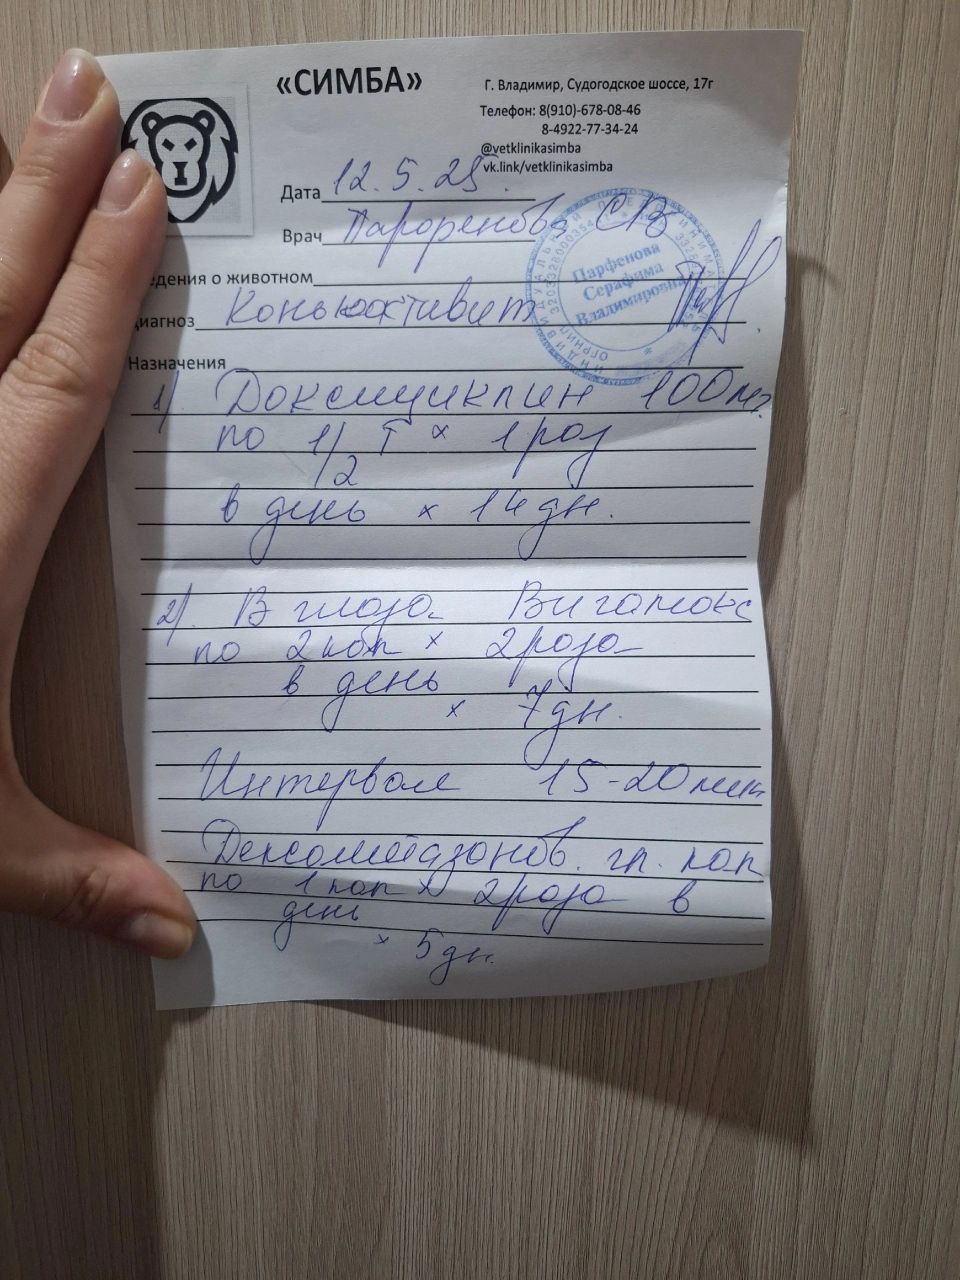 «СИМБА»
Г. Владимир, Судогодское шоссе, 17г
Телефон: 8(910)-678-08-46
8-4922-77-34-24
@vetklinikasimba
vk.link/vetklinikasimba
Дата 12.5.25.
Врач Парфенова СВ
едения о животном
диагноз Коньюктивит
Парфенова
Серафима
Владимировна
Назначения
1). Доксициклин 100мг
по 1/2 т × 1 раз
в день × 14 дн.
2). В глаза Вигамокс
по 2 кап × 2 раза
в день
× 7 дн.
Интервал 15-20 мин
Дексаметазонов. гл. кап
по 1 кап × 2 раза в
день
× 5 дн.